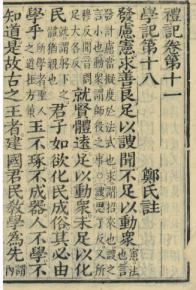 禮記卷第十一
學記第十八
鄭氏註
發慮憲求善良足以謏聞不足以動衆
就賢體遠足以動衆未足以化
民就謂躬下之體猶親也君子如欲化民成俗其必由
學乎所學者聖人之道在方策玉不琢不成器人不學不
知道是故古之王者建國君民教學為先